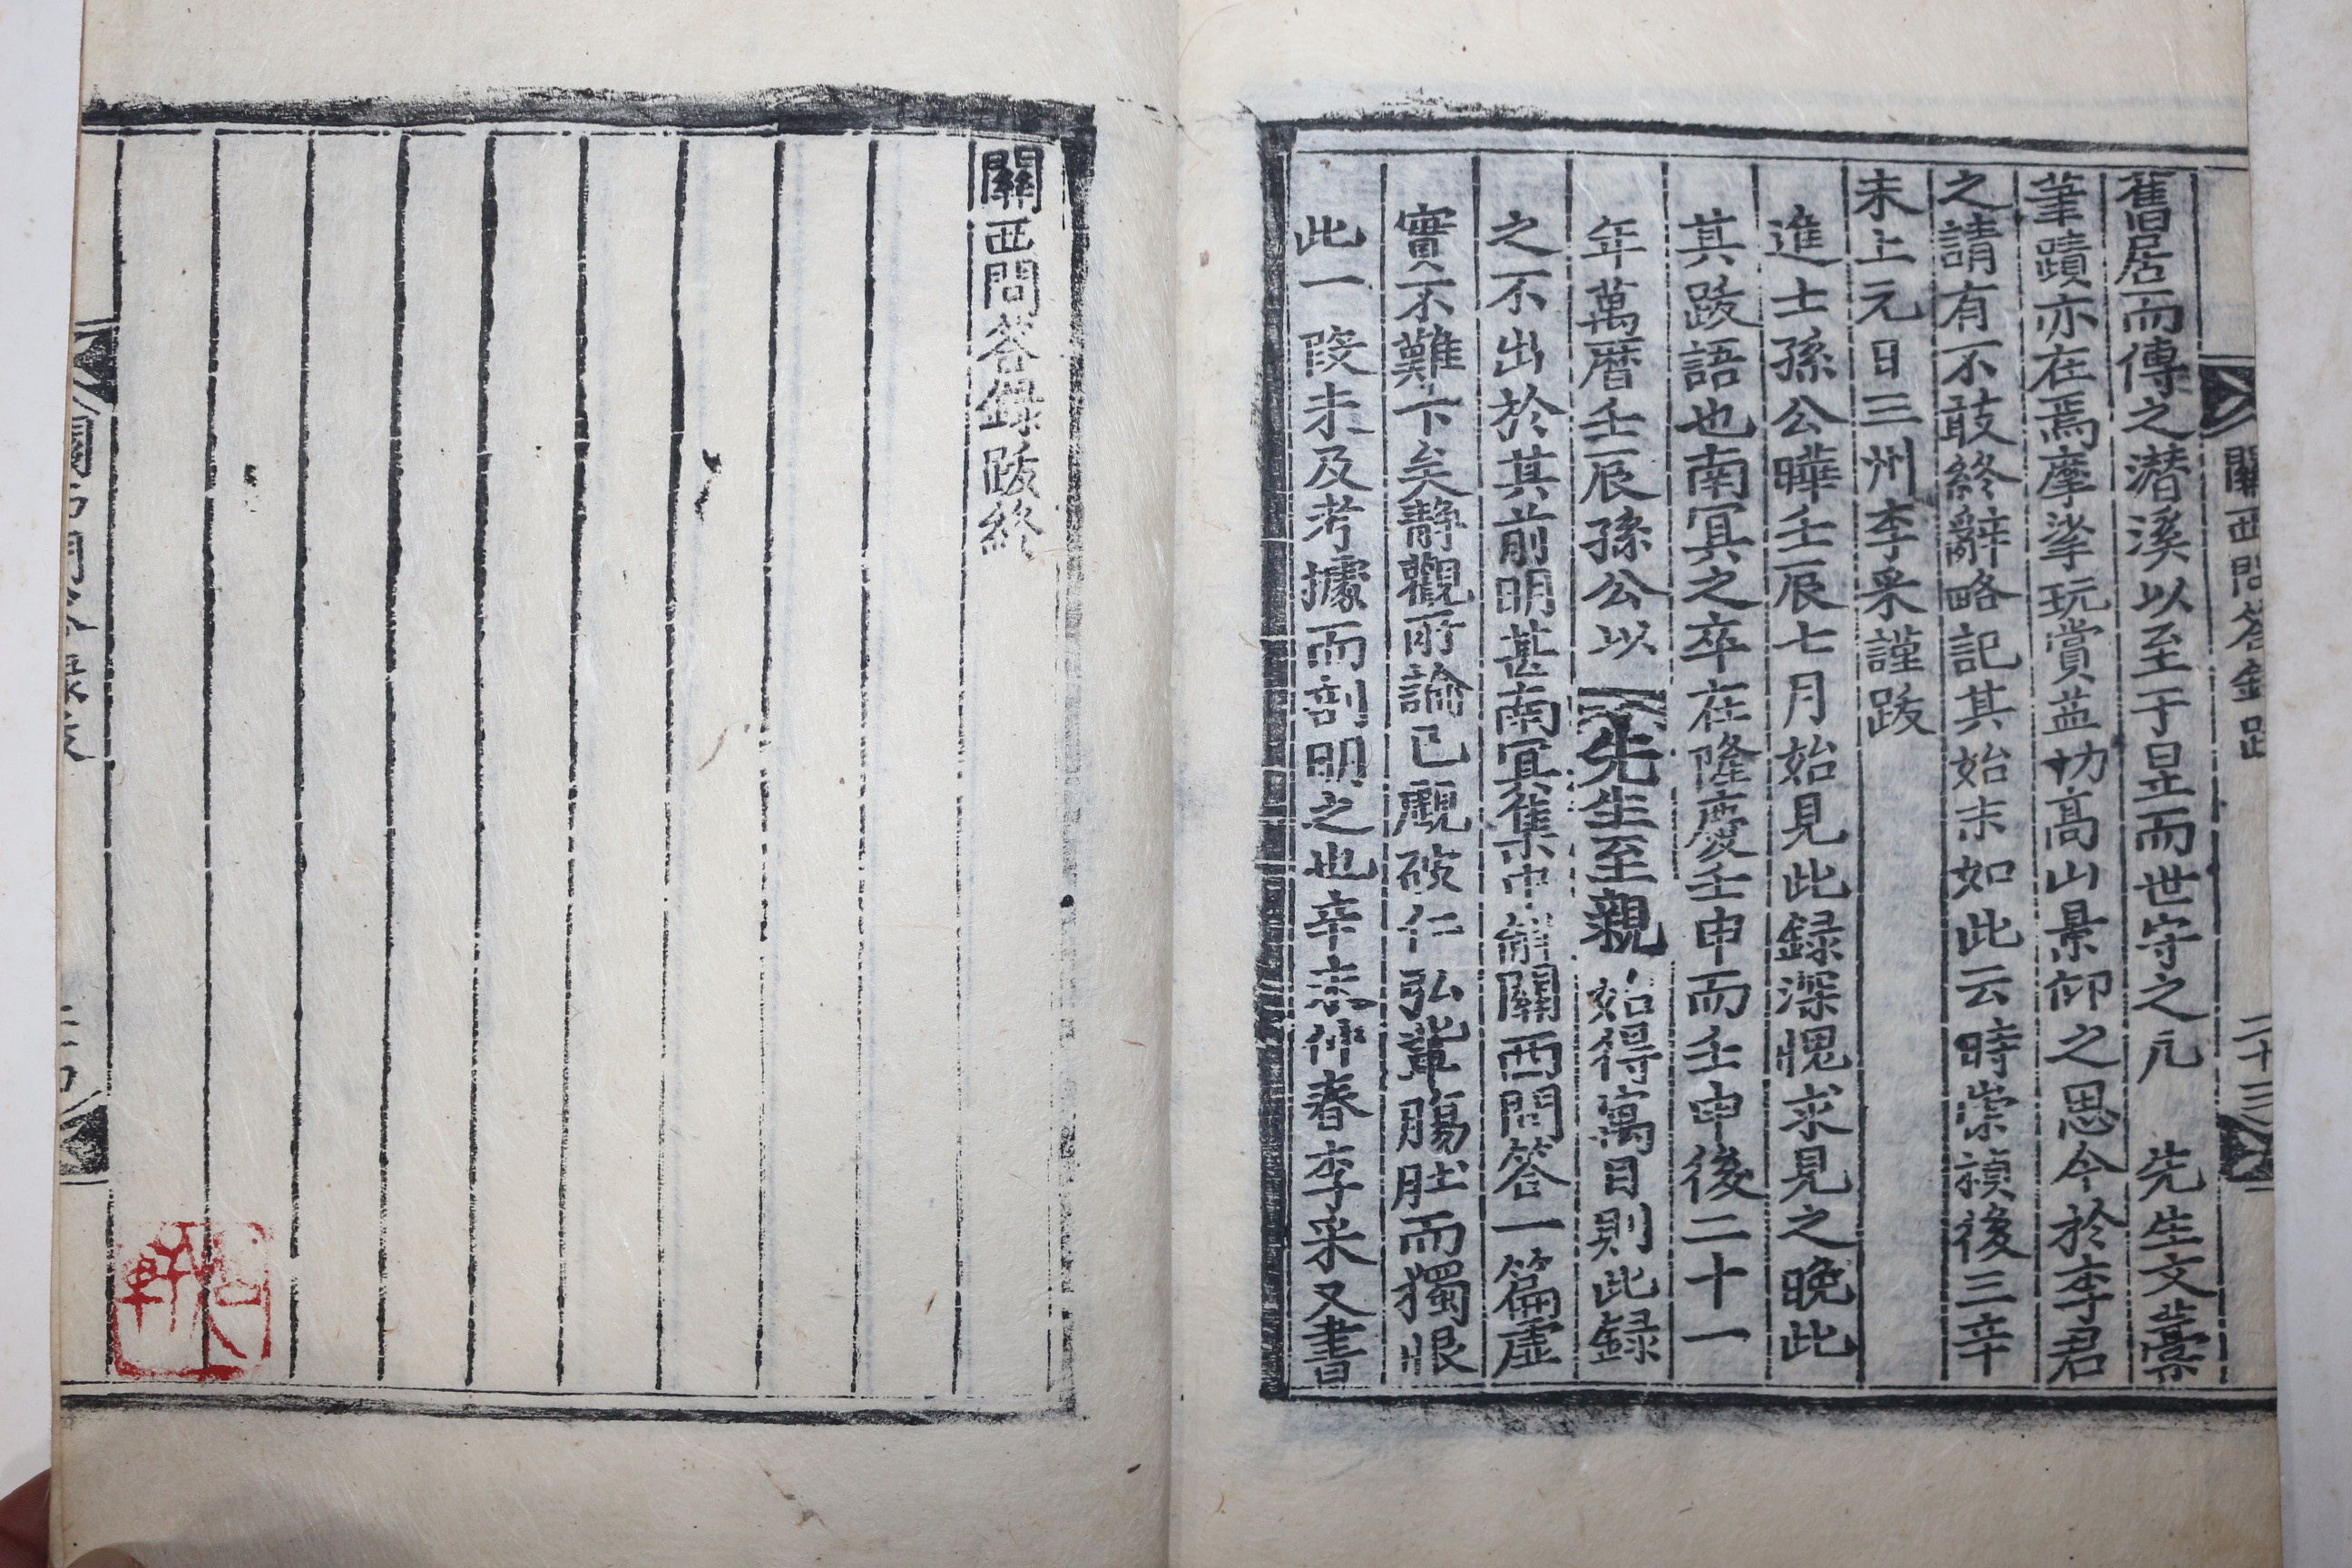 關西問答録跋
二十三
舊居而傳之潜溪以至于是而世守之凡 先生文藁
筆蹟亦在焉摩挲玩賞益切高山景仰之思今於李君
之請有不敢終辭略記其始末如此云時崇禎後三辛
未上元日三州李采謹跋
進士孫公曄壬辰七月始見此録深愧求見之晚此
其跋語也南冥之卒在隆慶壬申而壬申後二十一
年萬曆壬辰孫公以 先生至親始得寓目則此録
之不出於其前明甚南冥集中辭關西問答一篇虛
實不難卞矣靜觀所論已覷破仁弘輩膓肚而獨恨
此一段未及考據而剖明之也辛未仲春李采又書
關西問答録跋終